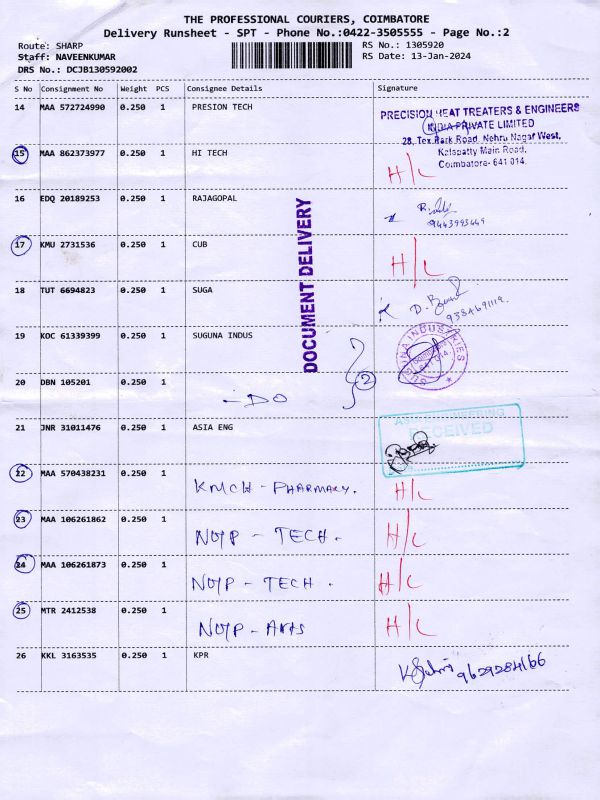 THE PROFESSIONAL COURIERS, COIMBATORE
Delivery Runsheet - SPT - Phone No.:0422-3505555 - Page No.:2
Route: SHARP
RS No.: 1305920
Staff: NAVEENKUMAR
RS Date: 13-Jan-2024
DRS No.: DCJB130592002
S No Consignment No Weight PCS Consignee Details Signature
14 MAA 572724990 0.250 1 PRESION TECH
PRECISION HEAT TREATERS & ENGINEERS
INDIA PRIVATE LIMITED
28, Tex Park Road, Nehru Nagar West,
Kalapatty Main Road,
Coimbatore-641 014.
15 MAA 862373977 0.250 1 HI TECH H/L
16 EDQ 20189253 0.250 1 RAJAGOPAL
9443993449
DOCUMENT DELIVERY
17 KMU 2731536 0.250 1 CUB H/L
18 TUT 6694823 0.250 1 SUGA
9384691119.
19 KOC 61339399 0.250 1 SUGUNA INDUS
SUGUNA INDUSTRIES
20 DBN 105201 0.250 1 - DO 2
21 JNR 31011476 0.250 1 ASIA ENG
RECEIVED
22 MAA 570438231 0.250 1 KMCH - PHARMACY. H/L
23 MAA 106261862 0.250 1 NGP - TECH. H/L
24 MAA 106261873 0.250 1 NGP - TECH. H/L
25 MTR 2412538 0.250 1 NGP - Arts H/L
26 KKL 3163535 0.250 1 KPR
9629284166